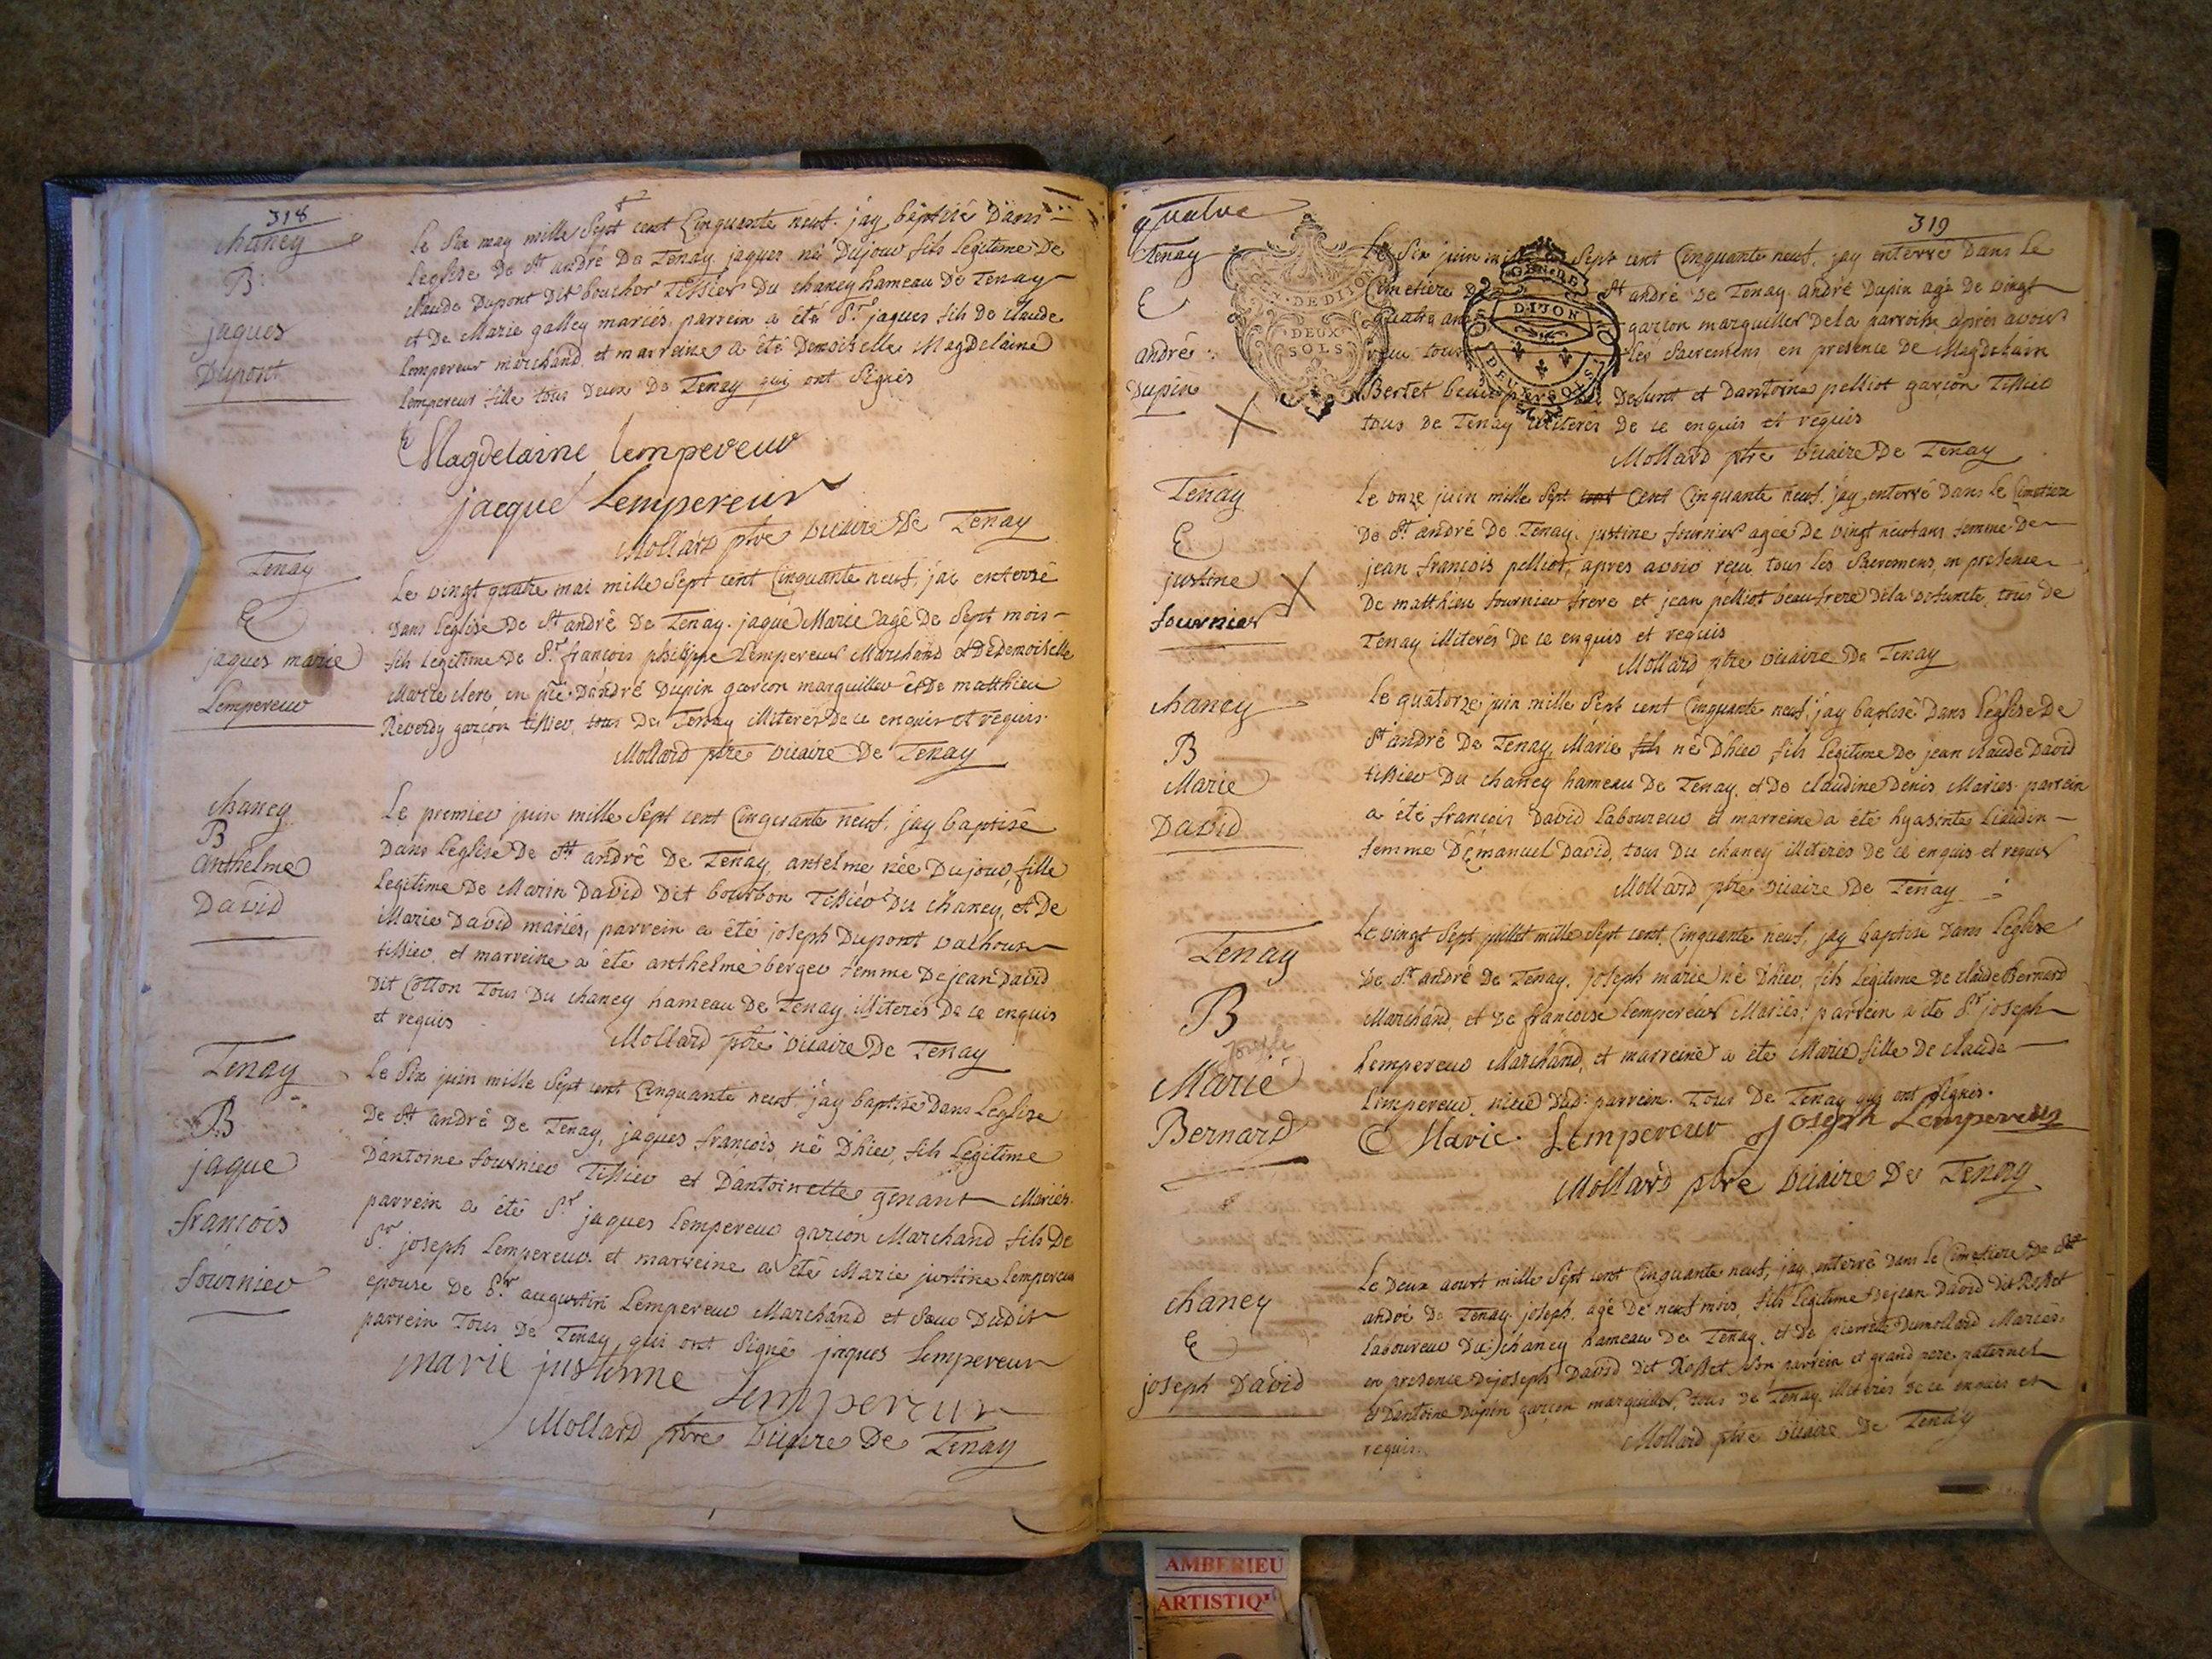 318
chaney
B
jaques
Dupont
Le Six may mille Sept cent Cinquante neuf. jay béptisé Dans
leglise De St andré De Tenay. jaques né Dujour fils legitime De
claude Dupont Dit boucher Tissier Du chaney hameau De Tenay
et De Marie galley mariés. parrein a été Sr. jaques fils de claude
lempereur marchand et marreine a été Demoiselle Magdelaine
lempereur fille tous Deux De Tenay qui ont Signés
Magdelaine lempereur
jacque Lempereur
Mollard ptre vicaire De Tenay
Tenay
E
jaques marie
Lempereur
Le vingt quatre mai mille Sept cent Cinquante neuf, jai enterré
Dans leglise De St andré De Tenay. jaque Marie agé De Sept mois
fils legitime De Sr. françois philippe Lempereur Marchand et De Demoiselle
Marie clerc en pce. Dandré Dupin garcon marguiller et De matthieu
Reverdy garçon tissier, tous De Tenay illiterés De ce enquis et requis.
Mollard ptre vicaire De Tenay
chaney
B
Anthelme
David
Le premier juin mille Sept cent Cinquante neuf, jay baptisé
Dans leglise De St andré De Tenay, anselme née Dujour, fille
legitime De Marin David Dit bourbon Tissier Du chaney, et De
Marie David mariés, parrein a été joseph Dupont valhour
tissier, et marreine a été anthelme berger femme De jean David
Dit Cotton Tous Du chaney hameau De Tenay illiterés De ce enquis
et requis
Mollard ptre vicaire De Tenay
Tenay
B
jaque
françois
fournier
Le Six juin mille Sept cent Cinquante neuf jay baptisé Dans Leglise
De St andré De Tenay, jaques françois né Dhier, fils Legitime
Dantoine fournier Tissier et Dantoinette genant Mariés.
parrein a été Sr. jaques Lempereur garçon Marchand fils De
Sr. joseph Lempereur. et marreine a été Marie justine lempereur
epouse De Sr. augustin Lempereur Marchand et Soeur Dudit
parrein Tous De Tenay, qui ont Signé jaques Lempereur
marie justinne
Lempereur
Mollard ptre vicaire De Tenay
quatre
319
Tenay
E
andré
Dupin
GEN. DE DIJON
DEUX
SOLS
DIJON
DEUX SOLS
Le Six juin Sept cent Cinquante neuf, jay enterré Dans Le
Cimetiere St andré De Tenay andré Dupin agé De vingt
quatre ans garcon marguiller De la parroisse après avoir
reçu tous les Sacremens en presence De Magdelain
Bertet Defunt et Dantoine pelliot garçon Tissier
tous De Tenay illiterés De ce enquis et requis
Mollard ptre vicaire De Tenay
Tenay
E
justine
fournier
Le onze juin mille Sept cent Cent Cinquante neuf. jay enterré Dans Le Cimetiere
De St andré De Tenay. justine fournier agée De vingt neuf ans femme De
jean françois pelliot, apres avoir reçu tous les Sacremens, en presence
De matthieu fournier frere et jean pelliot beaufrere Dela Defuncte, tous De
Tenay illiterés De ce enquis et requis
Mollard ptre vicaire De Tenay
chaney
B
Marie
David
Le quatorze juin mille Sept cent Cinquante neuf, jay baptisé Dans leglise De
St andré De Tenay, Marie fils né Dhier fils legitime De jean claude David
tissier Du chaney hameau De Tenay, et De claudine Denis Mariés. parrein
a été françois David Laboureur et marreine a été hyasinte Liaudin
femme Démanuel David, tous Du chaney illiterés De ce enquis et requis
Mollard ptre vicaire De Tenay
Tenay
B
joseph
Marie
Bernard
Le vingt Sept juillet mille Sept cent Cinquante neuf, jay baptisé Dans Léglise
De St andré De Tenay. joseph marie né Dhier, fils legitime De claude Bernard
Marchand, et De francoise Lempereur Mariés, parrein a été Sr. joseph
Lempereur Marchand, et marreine a été Marie fille De claude
Lempereur, niece Dud: parrein. Tous De Tenay qui ont Signés.
Marie Lempereur Joseph Lempereur
Mollard ptre vicaire De Tenay
chaney
E
joseph David
Le Deux aoust mille Sept cent Cinquante neuf, jay enterré Dans Le Cimetiere De St
andré De Tenay. joseph. agé De neuf mois, fils Legitime De jean David Dit Rosset
laboureur Du chaney hameau De Tenay. et De pierrette Dumollard Mariés.
en presence De joseph David Dit Rosset Son parrein et grand pere paternel
et Dantoine Dupin garçon marguiller, tous De Tenay. illiterés De ce enquis et
requis.
Mollard ptre vicaire De Tenay
AMBERIEU
ARTISTIQU